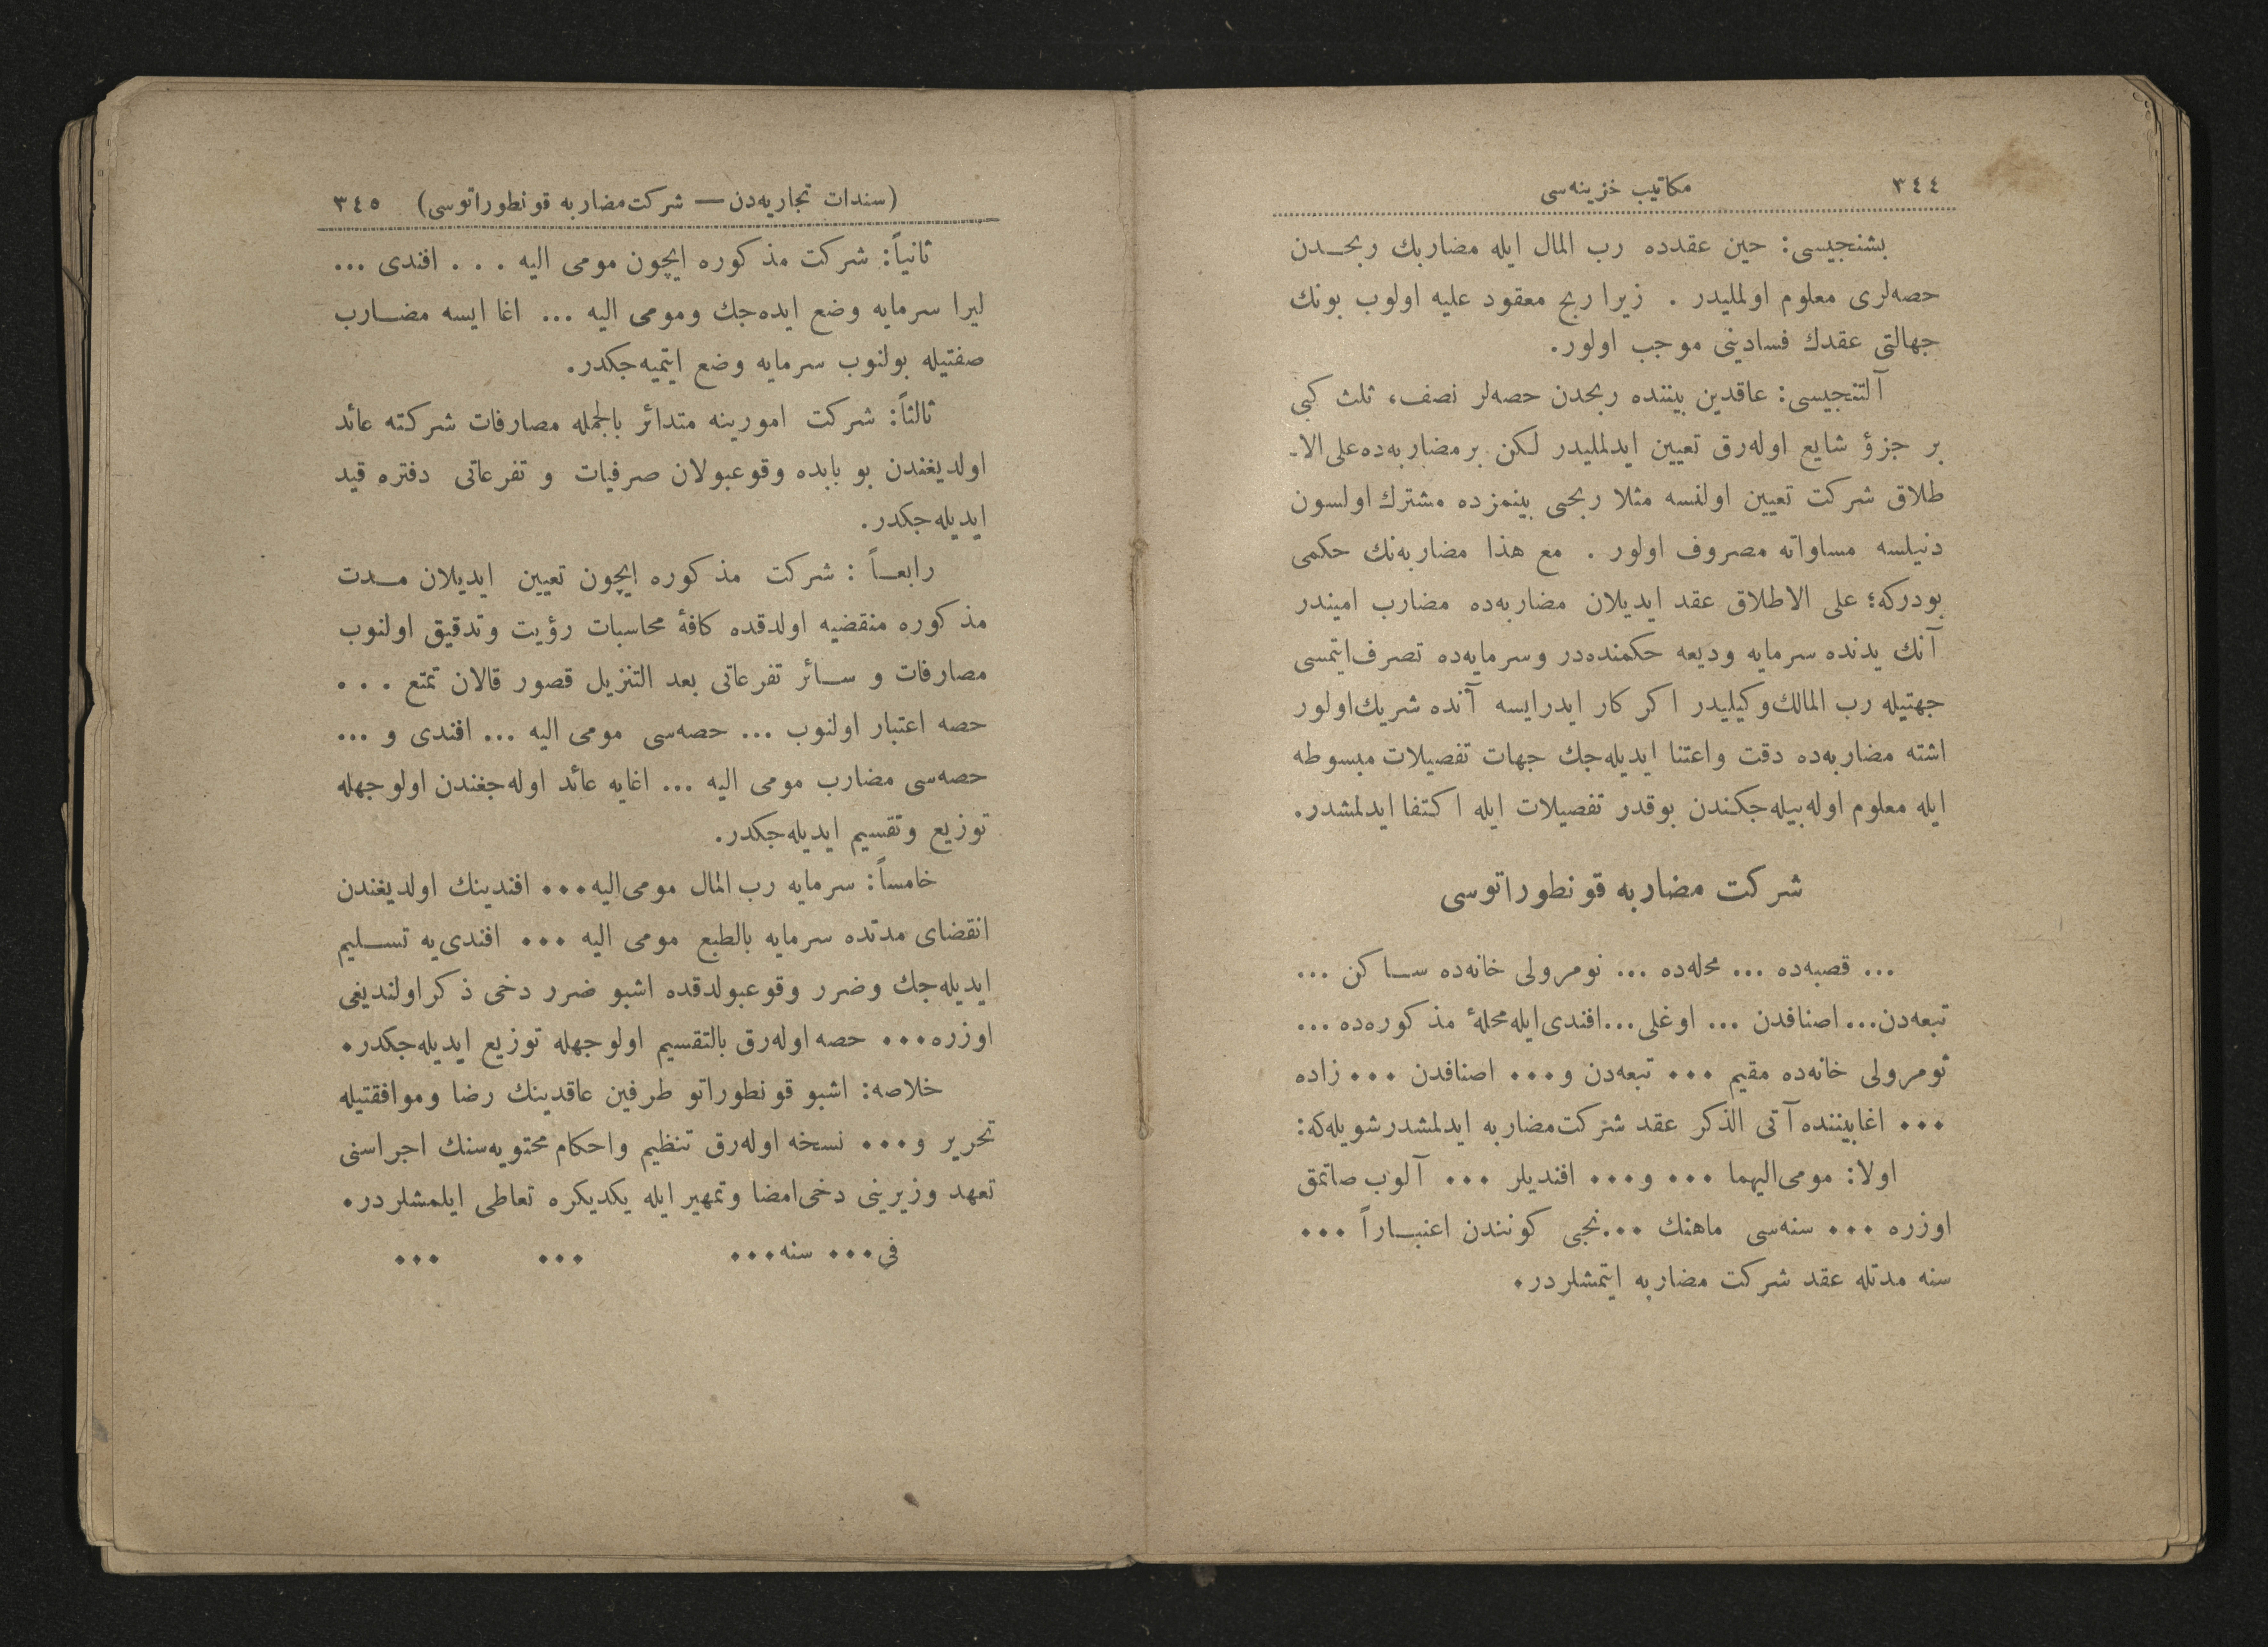 ٣٤٤
مكاتيب خزينه‌سى
بشنجيسى: حين عقدده رب المال ايله مضاربك ربحــدن
حصه‌لرى معلوم اولمليدر . زيرا ربح معقود عليه اولوب بونك
جهالتى عقدك فسادينى موجب اولور.
آلتنجيسى: عاقدين بيننده ربحدن حصه‌لر نصف، ثلث كبى
بر جزؤ شايع اوله‌رق تعيين ايدلمليدر لكن بر مضاربه‌ده على الا-
طلاق شركت تعيين اولنسه مثلا ربحى بينمزده مشترك اولسون
دنيلسه مساواته مصروف اولور . مع هذا مضاربه‌نك حكمى
بودركه؛ على الاطلاق عقد ايديلان مضاربه‌ده مضارب اميندر
آنك يدنده سرمايه وديعه حكمنده‌در وسرمايه‌ده تصرف ايتمسى
جهتيله رب المالك وكيليدر اكر كار ايدرايسه آنده شريك اولور
اشته مضاربه‌ده دقت واعتنا ايديله‌جك جهات تفصيلات مبسوطه
ايله معلوم اوله‌بيله‌جكندن بوقدر تفصيلات ايله اكتفا ايدلمشدر.
شركت مضاربه قونطوراتوسى
... قصبه‌ده ... محله‌ده ... نومرولى خانه‌ده ســاكن ...
تبعه‌دن... اصنافدن ... اوغلى...افندى ايله محلهٔ مذكوره‌ده ...
نومرولى خانه‌ده مقيم ... تبعه‌دن و... اصنافدن ... زاده
... اغابيننده آتى الذكر عقد شركت مضاربه ايدلمشدر شويله‌كه:
اولا: مومى اليهما ... و... افنديلر ... آلوب صاتمق
اوزره ... سنه‌سى ماهنك ...نجى كونندن اعتبــاراً ...
سنه مدتله عقد شركت مضاربه ايتمشلردر.
(سندات تجاريه‌دن — شركت مضاربه قونطوراتوسى) ٣٤٥
ثانياً: شركت مذكوره ايچون مومى اليه . . . افندى ...
ليرا سرمايه وضع ايده‌جك ومومى اليه ... اغا ايسه مضــارب
صفتيله بولنوب سرمايه وضع ايتميه‌جكدر.
ثالثاً: شركت امورينه متدائر بالجمله مصارفات شركته عائد
اولديغندن بو بابده وقوعبولان صرفيات و تفرعاتى دفتره قيد
ايديله‌جكدر.
رابعــاً : شركت مذكوره ايچون تعيين ايديلان مــدت
مذكوره منقضيه اولدقده كافهٔ محاسبات رؤيت وتدقيق اولنوب
مصارفات و ســائر تفرعاتى بعد التنزيل قصور قالان تمتع . . .
حصه اعتبار اولنوب ... حصه‌سى مومى اليه ... افندى و ...
حصه‌سى مضارب مومى اليه ... اغايه عائد اوله‌جغندن اولوجهله
توزيع وتقسيم ايديله‌جكدر.
خامساً: سرمايه رب المال مومى اليه... افندينك اولديغندن
انقضاى مدتده سرمايه بالطبع مومى اليه ... افندى‌يه تســليم
ايديله‌جك وضرر وقوعبولدقده اشبو ضرر دخى ذكر اولنديغى
اوزره... حصه اوله‌رق بالتقسيم اولوجهله توزيع ايديله‌جكدر.
خلاصه: اشبو قونطوراتو طرفين عاقدينك رضا وموافقتيله
تحرير و... نسخه اوله‌رق تنظيم واحكام محتويه‌سنك اجراسنى
تعهد وزيرينى دخى امضا وتمهير ايله يكديكره تعاطى ايلمشلردر.
فى... سنه... ... ...